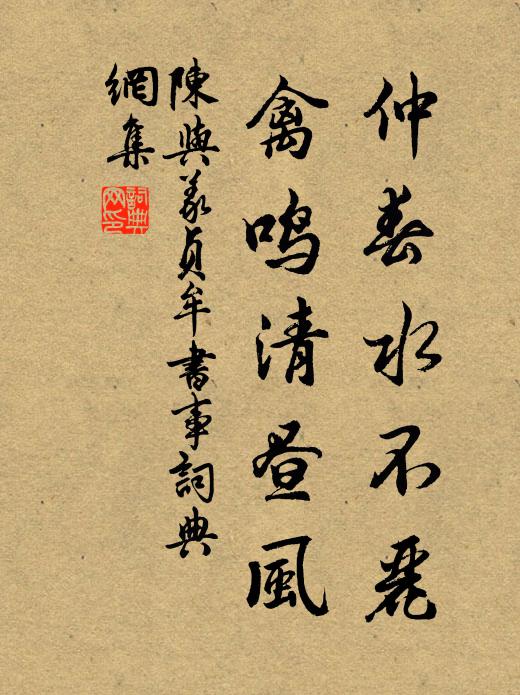 仲春水不麗
禽鳴清昼風
陳與義貞牟書事詞典
網集
詞典網印